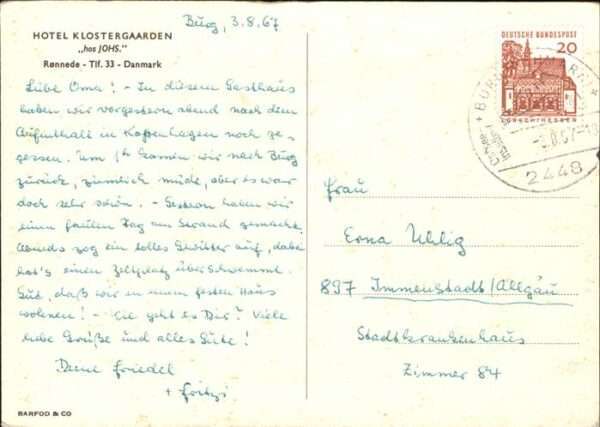 Burg, 3.8.67
HOTEL KLOSTERGAARDEN
„hos JOHS."
Rønnede - Tlf. 33 - Danmark
Liebe Oma! - In diesem Gasthaus
haben wir vorgestern abend nach dem
Aufenthalt in Kopenhagen noch ge-
gessen. Um 1 kamen wir nach Burg
zurück, ziemlich müde, aber es war
doch sehr schön. - Gestern haben wir
einen faulen Tag am Strand gemacht.
Abends zog ein tolles Gewitter auf, dabei
hat's einen Zeltplatz überschwemmt.
Gut, daß wir in einem festen Haus
wohnen! - Wie geht es Dir? Viele
liebe Grüße und alles Gute!
Deine Friedel
+ Fritzi
BARFOD & CO
DEUTSCHE BUNDESPOST
20
LORSCH/HESSEN
BURG
2448
Frau
Erna Uhlig
897 Immenstadt/Allgäu
Stadtkrankenhaus
Zimmer 84